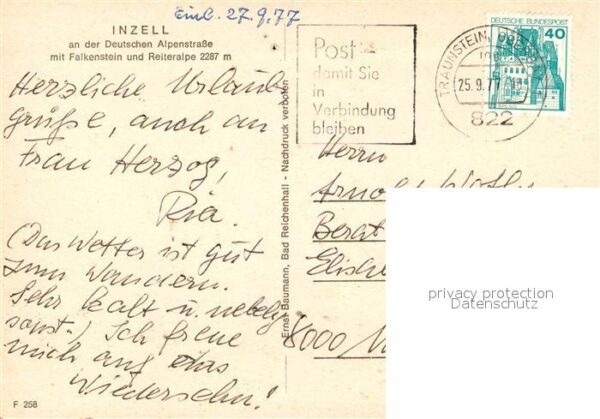 Einb. 27.9.77
INZELL
an der Deutschen Alpenstraße
mit Falkenstein und Reiteralpe 2287 m
Herzliche Urlaubs
grüße, auch an
Frau Herzog,
Ria.
(Das Wetter ist gut
zum Wandern.
Sehr kalt u. nebelig
sonst.) Ich freue
mich auf das
Wiedersehn!
F 258
Ernst Baumann, Bad Reichenhall - Nachdruck verboten
Post
damit Sie
in
Verbindung
bleiben
TRAUNSTEIN, OBERB
25.9.77
822
DEUTSCHE BUNDESPOST
40
Herrn
Berat
Elische
8000 M
privacy protection
Datenschutz